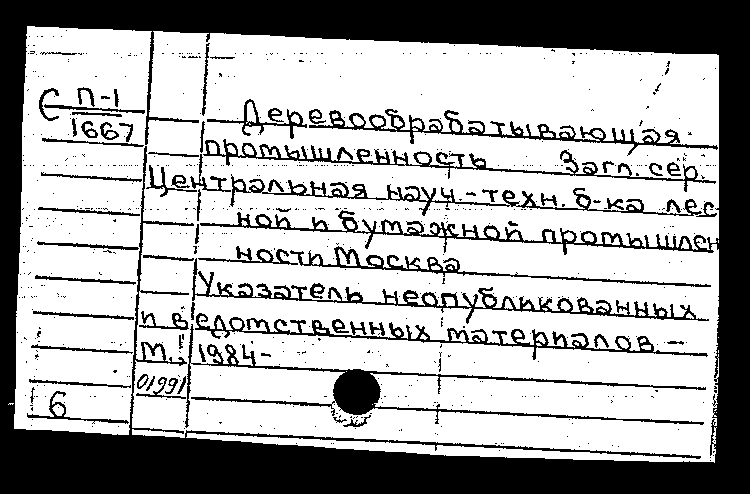 С П-1
1667
Деревообрабатывающая
промышленность Загл. сер.
Центральная науч.-техн. б-ка лес
ной и бумажной промышлен
ности Москва
Указатель неопубликованных
и ведомственных материалов. —
М.: 1984-
01991
6